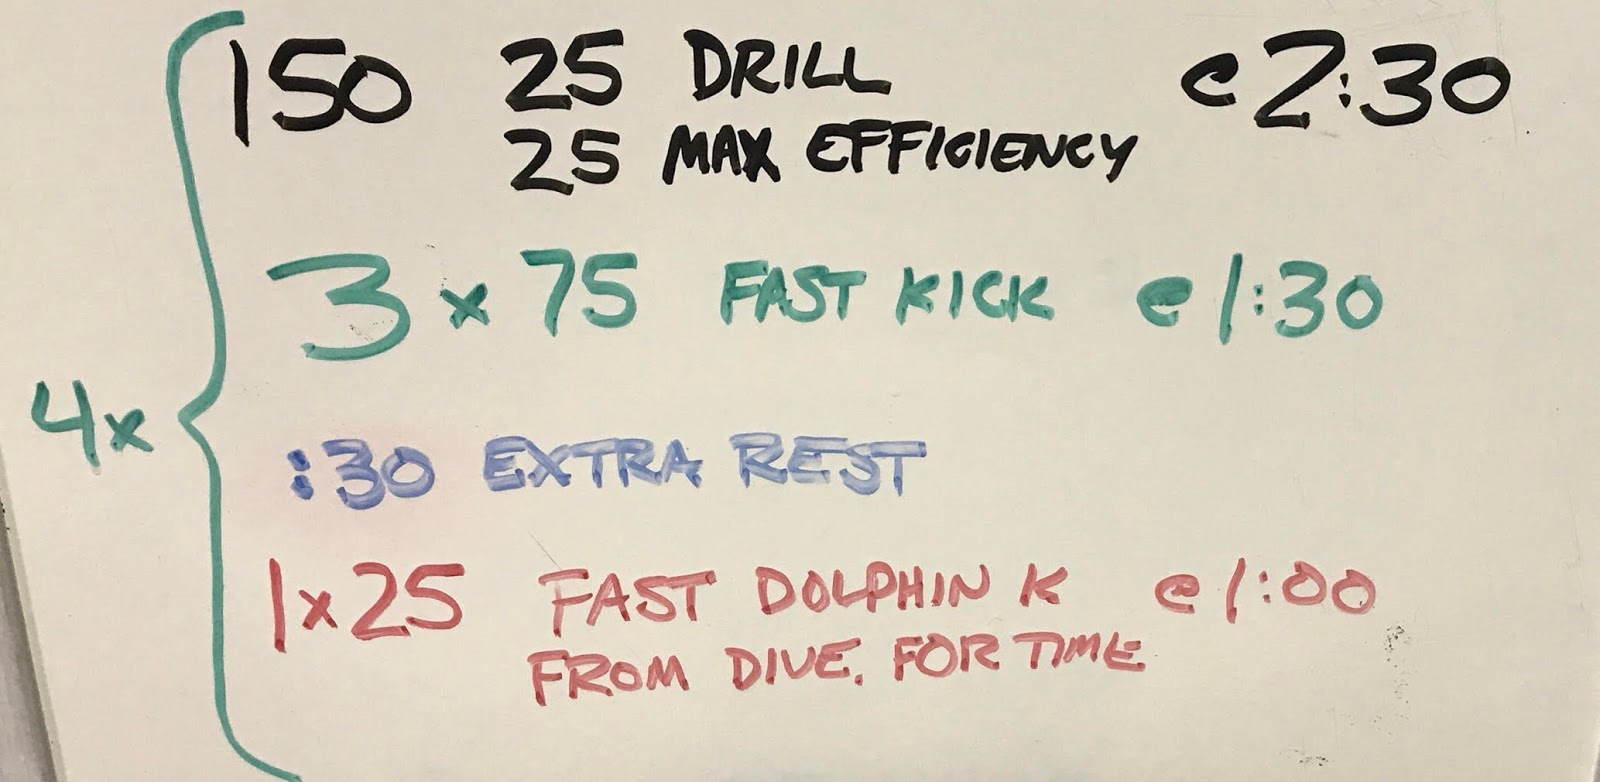 150 25 DRILL @2:30
25 MAX EFFICIENCY
3 x 75 FAST KICK @1:30
4x
:30 EXTRA REST
1x25 FAST DOLPHIN K @1:00
FROM DIVE. FOR TIME